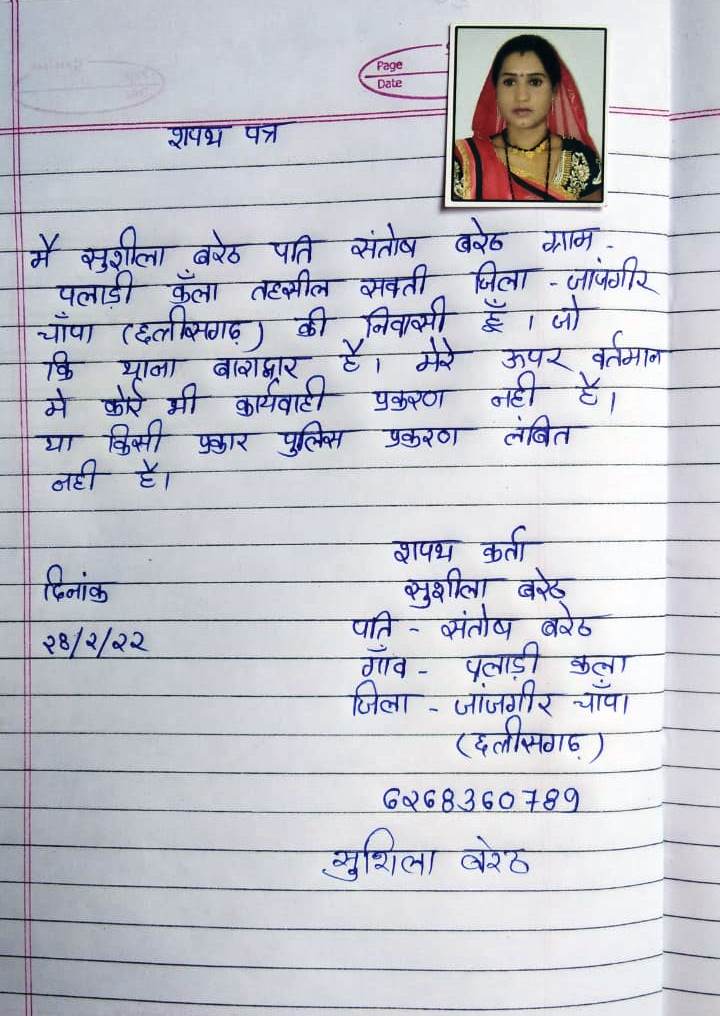 Page
Date
शपथ पत्र
मै सुशीला बरेठ पति संतोष बरेठ ग्राम -
पलाड़ी कँला तहसील सक्ती जिला - जांजगीर
चाँपा (छत्तीसगढ़) की निवासी हूँ । जो
कि थाना बाराद्वार है। मेरे ऊपर वर्तमान
मे कोई भी कार्यवाही प्रकरण नही है।
या किसी प्रकार पुलिस प्रकरण लंबित
नही है।
शपथ कर्ता
दिनांक
सुशीला बरेठ
२४/२/२२
पति - संतोष बरेठ
गाँव - पलाड़ी कला
जिला - जांजगीर चाँपा
(छत्तीसगढ़)
6२68360789
सुशिला बरेठ